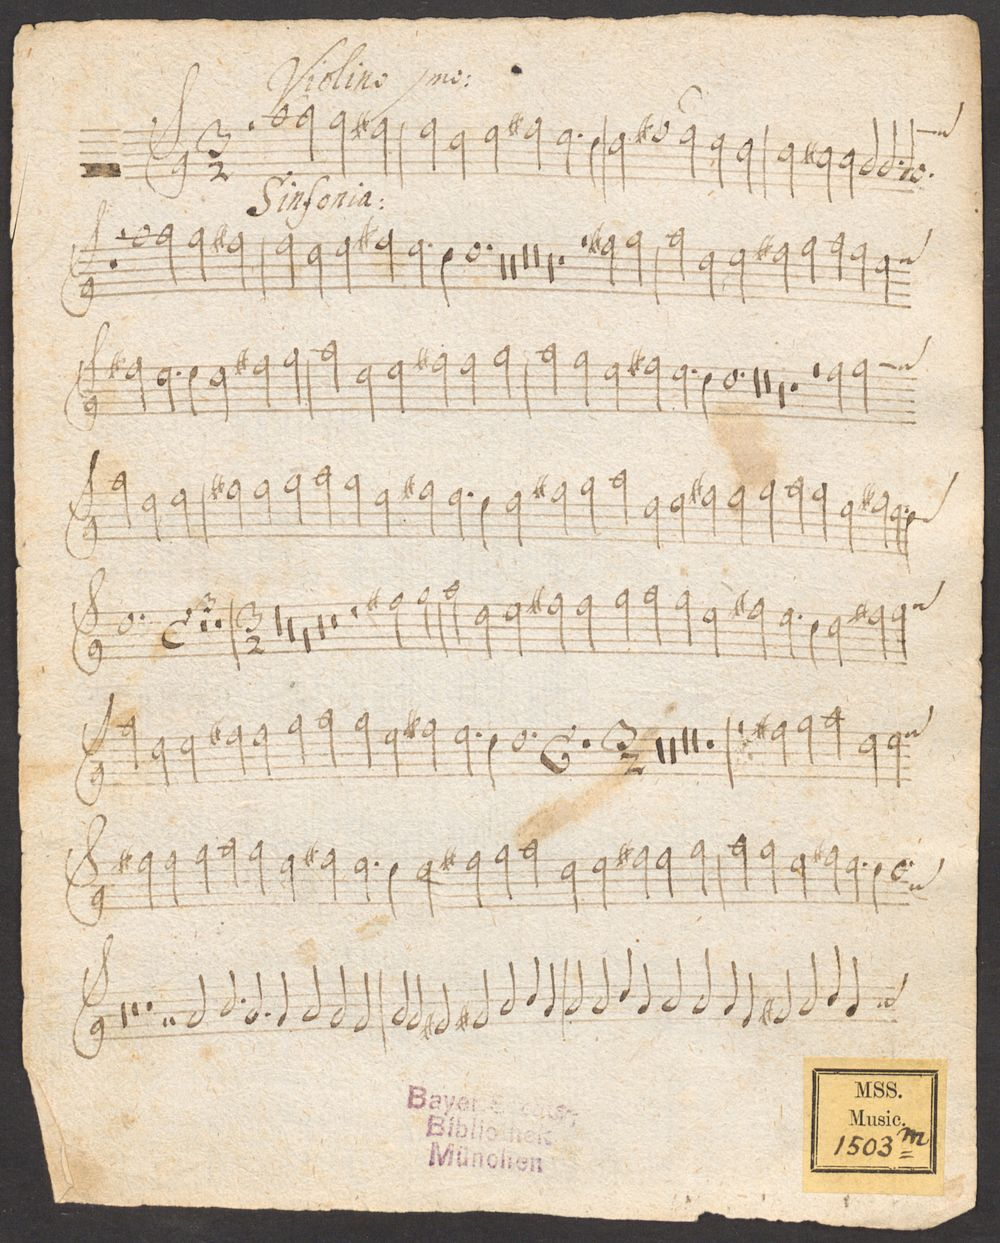 Violino 1mo:
3
2
Sinfonia:
3
3
2
3
2
Bayer. Staats-
Bibliothek
München
MSS.
Music.
1503 m